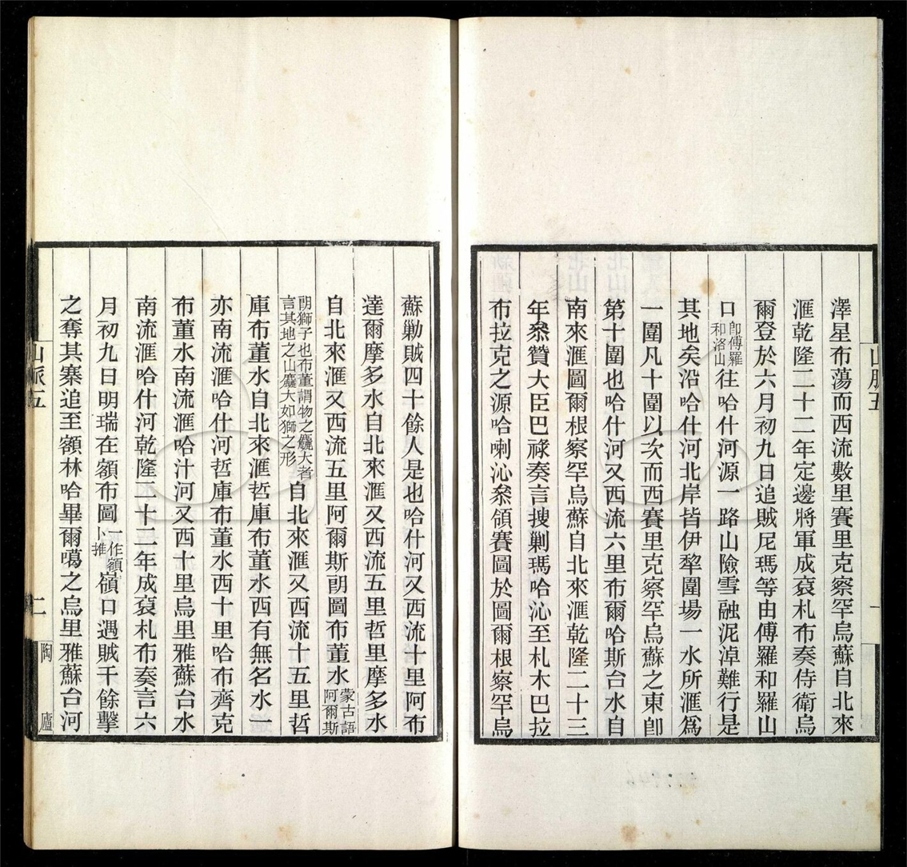 澤星布蕩而西流數里賽里克察罕烏蘇自北來
滙乾隆二十二年定邊將軍成袞札布奏侍衛烏
爾登於六月初九日追賊尼瑪等由傅羅和羅山
口卽傅羅和洛山往哈什河源一路山險雪融泥淖難行是
其地矣沿哈什河北岸皆伊犂圍場一水所滙爲
一圍凡十圍以次而西賽里克察罕烏蘇之東卽
第十圍也哈什河又西流六里布爾哈斯台水自
南來滙圖爾根察罕烏蘇自北來滙乾隆二十三
年叅贊大臣巴祿奏言搜剿瑪哈沁至札木巴拉
布拉克之源哈喇沁叅領賽圖於圖爾根察罕烏
山脈五
一
蘇勦賊四十餘人是也哈什河又西流十里阿布
達爾摩多水自北來滙又西流五里哲里摩多水
自北來滙又西流五里阿爾斯朗圖布董水蒙古語阿爾斯
朗獅子也布董謂物之麤大者言其地之山麤大如獅之形自北來滙又西流十五里哲
庫布董水自北來滙哲庫布董水西有無名水一
亦南流滙哈什河哲庫布董水西十里哈布齊克
布董水南流滙哈什河又西十里烏里雅蘇台水
南流滙哈什河乾隆二十二年成袞札布奏言六
月初九日明瑞在額布圖一作額卜推嶺口遇賊千餘擊
之奪其寨追至額林哈畢爾噶之烏里雅蘇台河
山脈五
二
陶廬